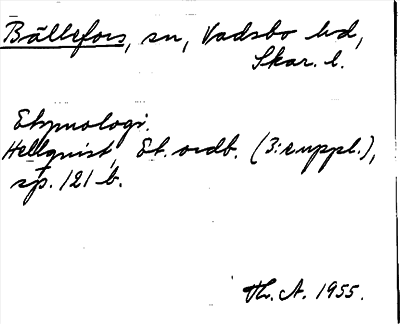 Bällefors, sn, Vadsbo hd,
Skar. l.
Etymologi.
Hellquist, Et. ordb. (3:e uppl.),
sp. 121 b.
Th. A. 1955.